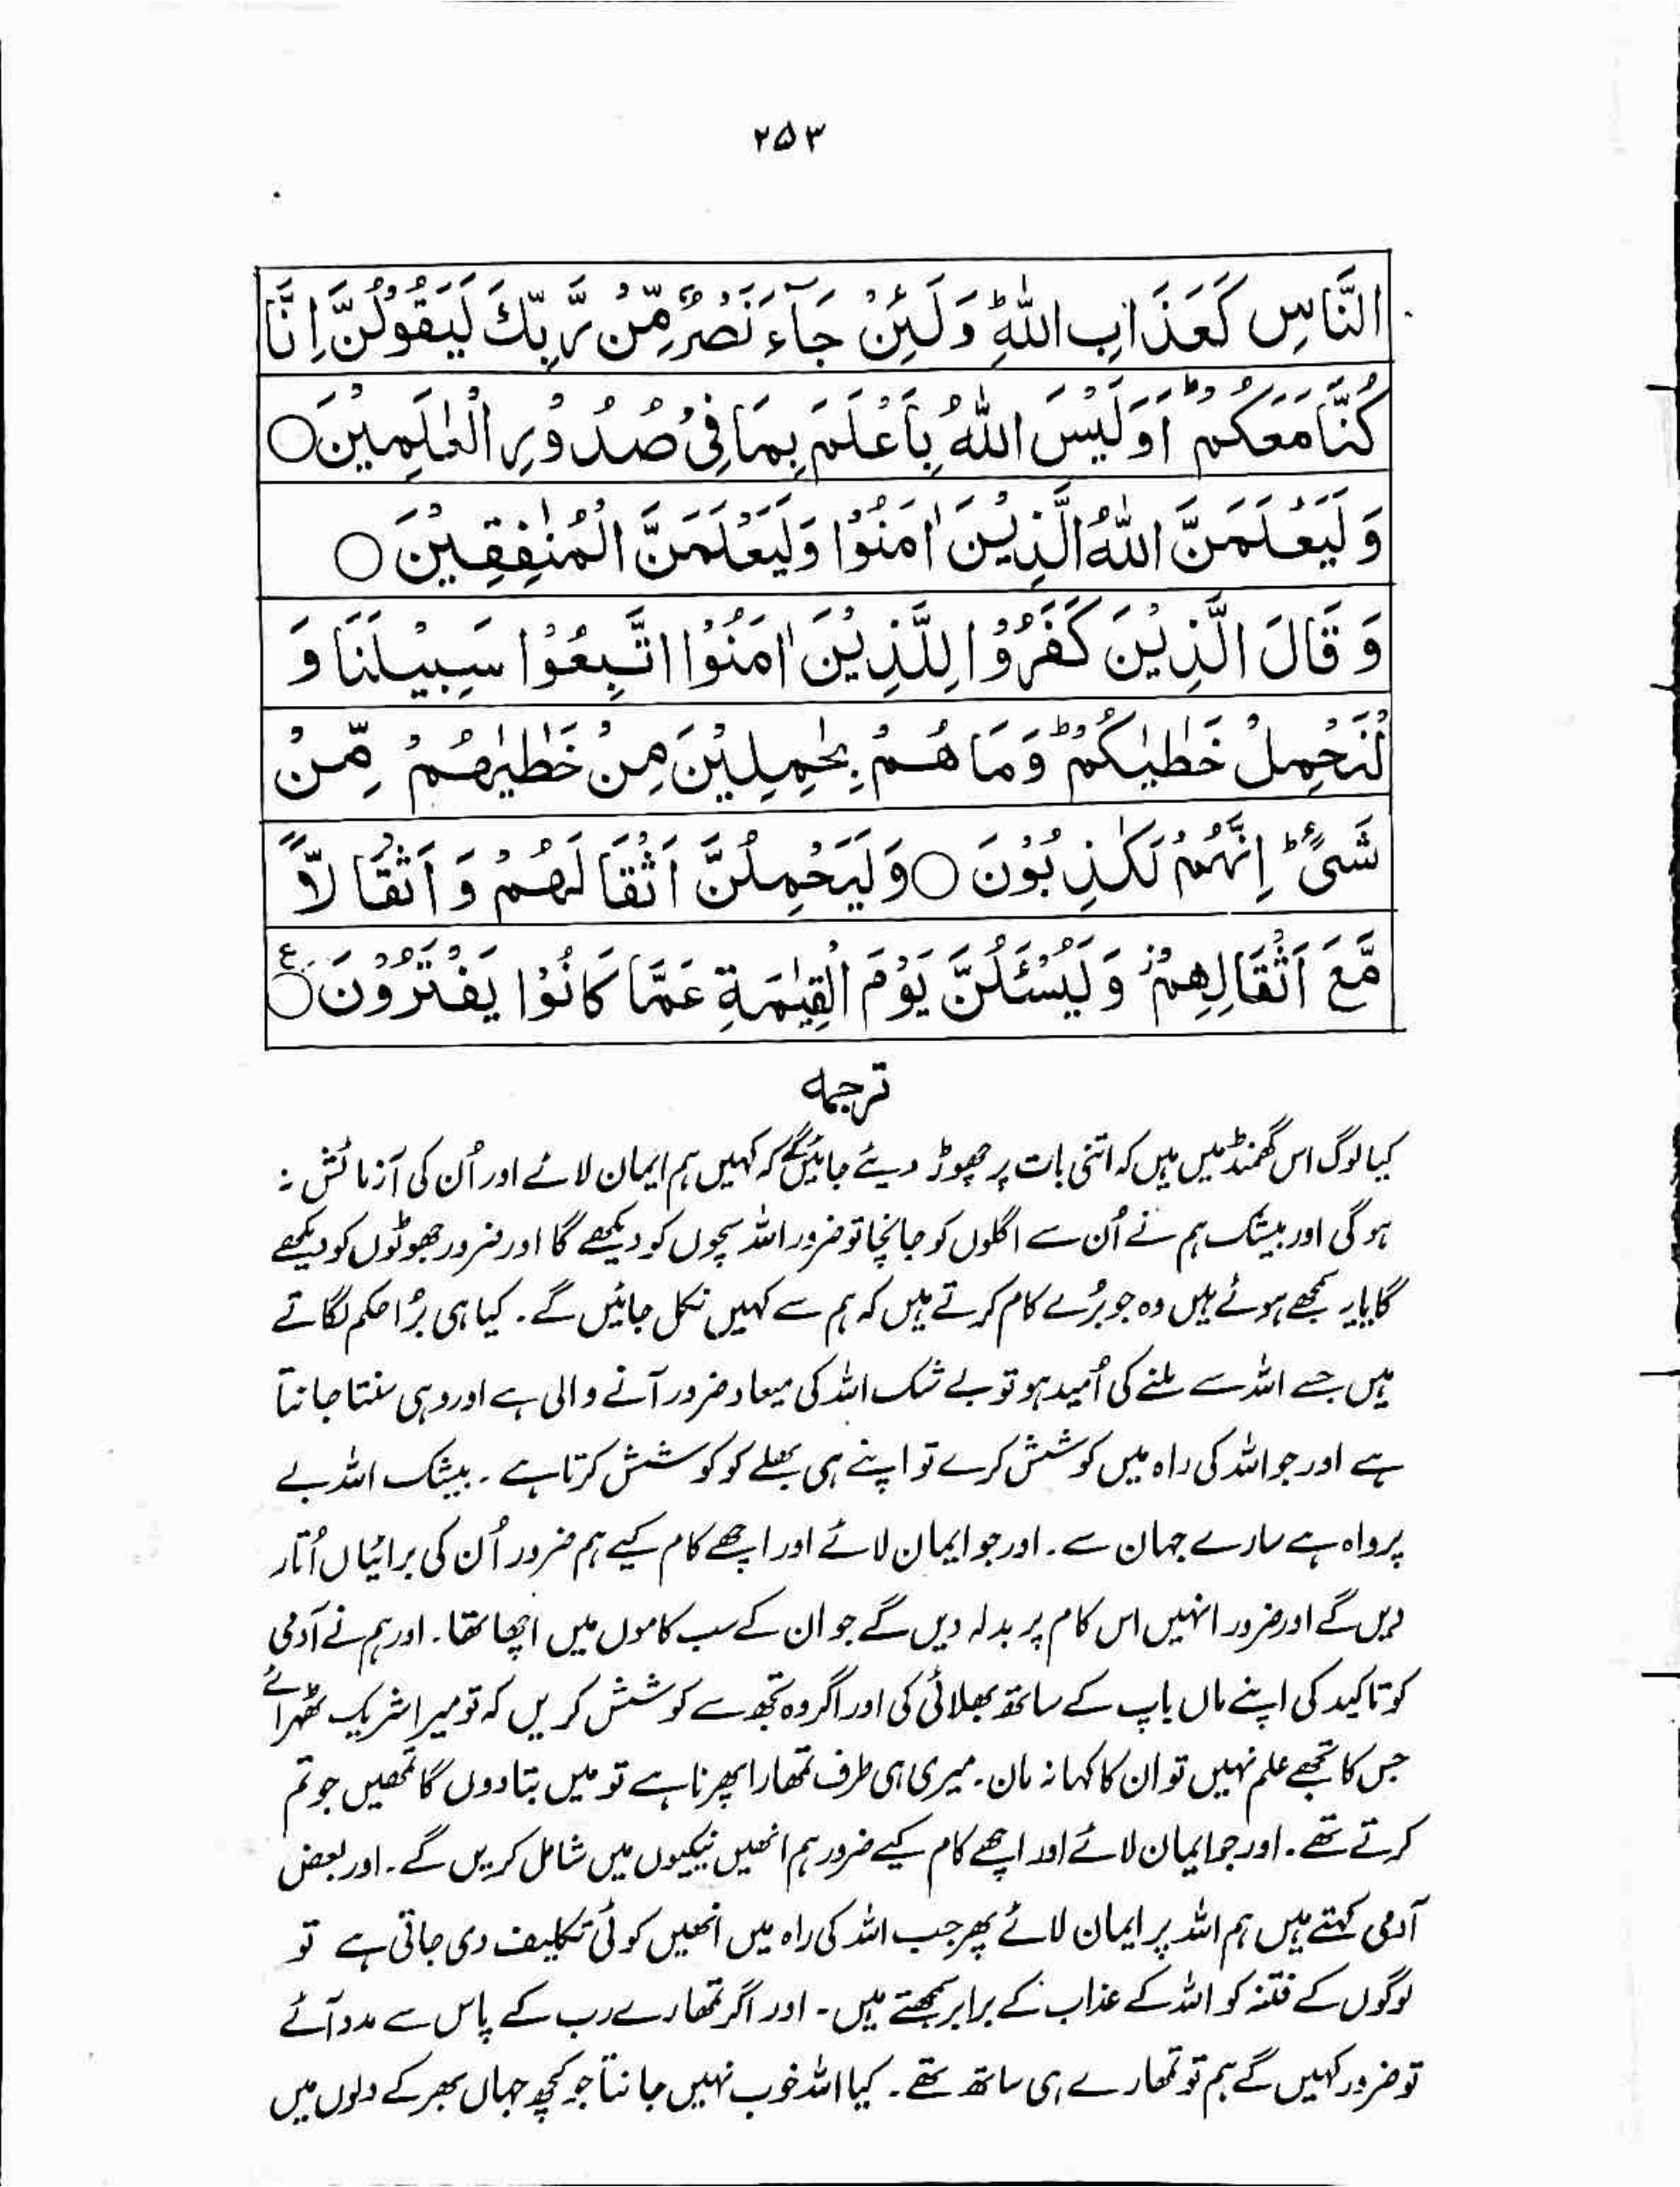 ۲۵۳
النَّاسِ كَعَذَابِ اللّٰهِ ؕ وَلَئِنْ جَآءَ نَصْرٌ مِّنْ رَّبِّكَ لَيَقُوْلُنَّ اِنَّا
كُنَّا مَعَكُمْ ؕ اَوَلَيْسَ اللّٰهُ بِاَعْلَمَ بِمَا فِيْ صُدُوْرِ الْعٰلَمِيْنَ ○
وَلَيَعْلَمَنَّ اللّٰهُ الَّذِيْنَ اٰمَنُوْا وَلَيَعْلَمَنَّ الْمُنٰفِقِيْنَ ○
وَ قَالَ الَّذِيْنَ كَفَرُوْا لِلَّذِيْنَ اٰمَنُوا اتَّبِعُوْا سَبِيْلَنَا وَ
لْنَحْمِلْ خَطٰيٰكُمْ ؕ وَمَا هُمْ بِحٰمِلِيْنَ مِنْ خَطٰيٰهُمْ مِّنْ
شَيْءٍ ؕ اِنَّهُمْ لَكٰذِبُوْنَ ○ وَلَيَحْمِلُنَّ اَثْقَالَهُمْ وَ اَثْقَالًا
مَّعَ اَثْقَالِهِمْ ز وَلَيُسْئَلُنَّ يَوْمَ الْقِيٰمَةِ عَمَّا كَانُوْا يَفْتَرُوْنَ ○ ع
ترجمہ
کیا لوگ اس گھمنڈ میں ہیں کہ اتنی بات پر چھوڑ دیئے جائیں گے کہ کہیں ہم ایمان لائے اور اُن کی آزمائش نہ
ہوگی اور بیشک ہم نے اُن سے اگلوں کو جانچا تو ضرور اللہ سچوں کو دیکھے گا اور ضرور جھوٹوں کو دیکھے
گا یا یہ سمجھے ہوئے ہیں وہ جو بُرے کام کرتے ہیں کہ ہم سے کہیں نکل جائیں گے۔ کیا ہی بُرا حکم لگاتے
ہیں جسے اللہ سے ملنے کی اُمید ہو تو بے شک اللہ کی میعاد ضرور آنے والی ہے اور وہی سنتا جانتا
ہے اور جو اللہ کی راہ میں کوشش کرے تو اپنے ہی بھلے کو کوشش کرتا ہے۔ بیشک اللہ بے
پرواہ ہے سارے جہان سے۔ اور جو ایمان لائے اور اچھے کام کیے ہم ضرور اُن کی برائیاں اُتار
دیں گے اور ضرور انہیں اس کام پر بدلہ دیں گے جو ان کے سب کاموں میں اچھا تھا۔ اور ہم نے آدمی
کو تاکید کی اپنے ماں باپ کے ساتھ بھلائی کی اور اگر وہ تجھ سے کوشش کریں کہ تو میرا شریک ٹھہرائے
جس کا تجھے علم نہیں تو ان کا کہا نہ مان۔ میری ہی طرف تمھارا پھرنا ہے تو میں بتا دوں گا تمھیں جو تم
کرتے تھے۔ اور جو ایمان لائے اور اچھے کام کیے ضرور ہم انھیں نیکیوں میں شامل کریں گے۔ اور بعض
آدمی کہتے ہیں ہم اللہ پر ایمان لائے پھر جب اللہ کی راہ میں انھیں کوئی تکلیف دی جاتی ہے تو
لوگوں کے فتنہ کو اللہ کے عذاب کے برابر سمجھتے ہیں۔ اور اگر تمھارے رب کے پاس سے مدد آئے
تو ضرور کہیں گے ہم تو تمھارے ہی ساتھ تھے۔ کیا اللہ خوب نہیں جانتا جو کچھ جہاں بھر کے دلوں میں